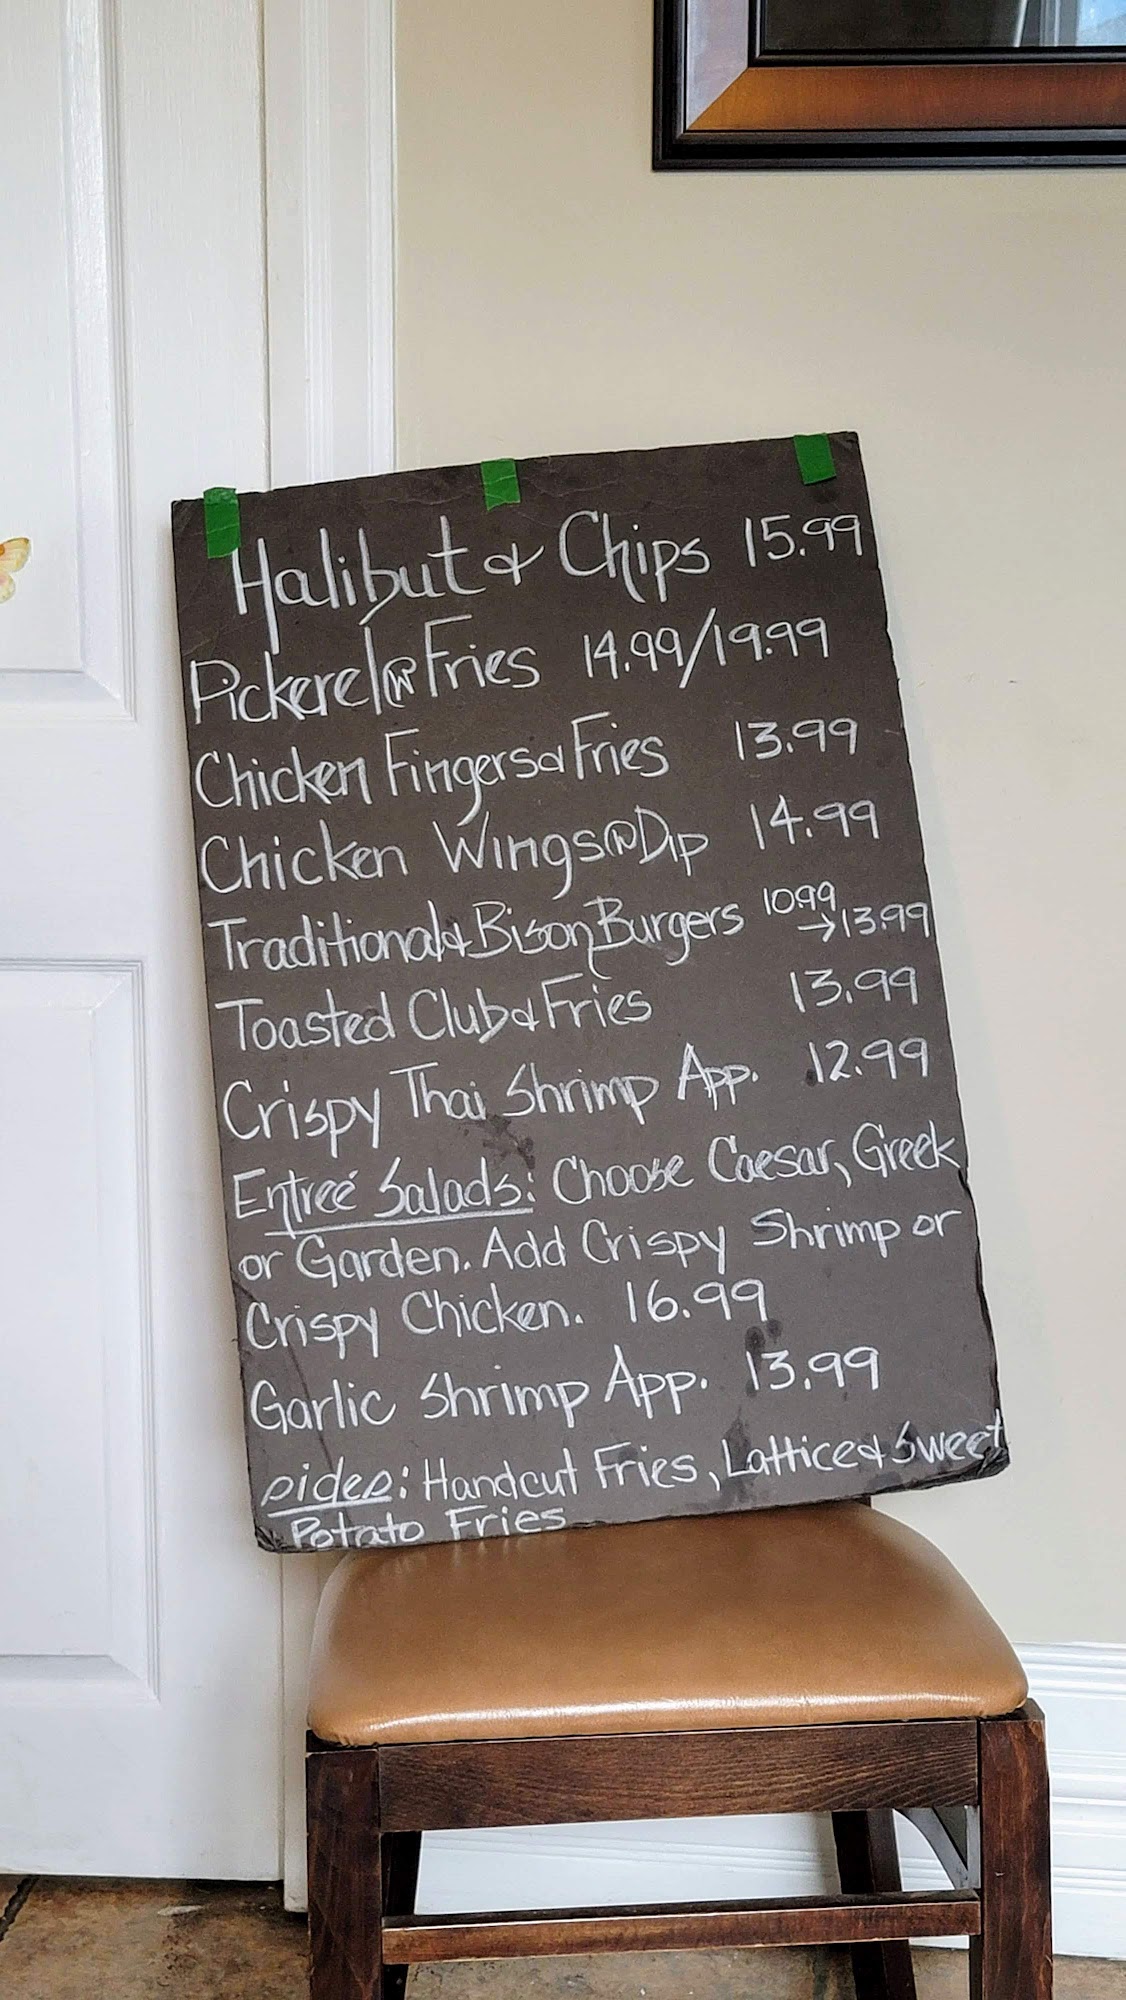 Halibut & Chips 15.99
Pickerel w Fries 14.99/19.99
Chicken Fingers & Fries 13.99
Chicken Wings w Dip 14.99
Traditional & Bison Burgers 10.99 → 13.99
Toasted Club & Fries 13.99
Crispy Thai Shrimp App. 12.99
Entreé Salads: Choose Caesar, Greek
or Garden. Add Crispy Shrimp or
Crispy Chicken. 16.99
Garlic Shrimp App. 13.99
Sides: Handcut Fries, Lattice & Sweet
Potato Fries